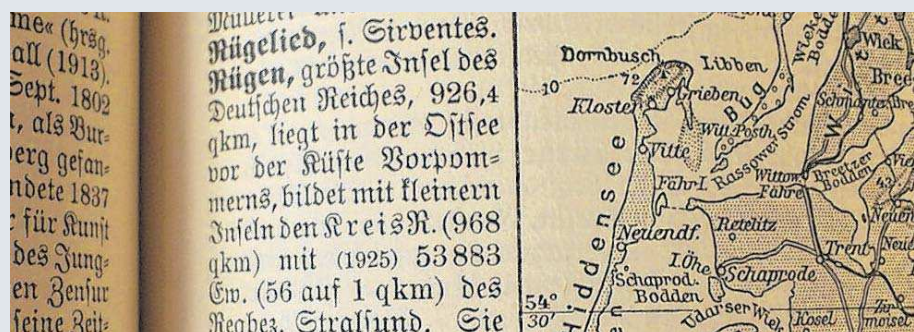 me« (hrsg.
all (1913).
Sept. 1802
, als Bur-
berg gefan-
ndete 1837
für Kunst
des Jung-
en Zensur
seine Zeit-
Rügelied, s. Sirventes.
Rügen, größte Insel des
Deutschen Reiches, 926,4
qkm, liegt in der Ostsee
vor der Küste Vorpom-
merns, bildet mit kleinern
Inseln den Kreis R. (968
qkm) mit (1925) 53883
Ew. (56 auf 1 qkm) des
Regbez. Stralsund. Sie
Dornbusch
72
Libben
Wieker
Bodden
Wiek
10
Kloster
Grieben
Bug
Witt. Posth.
Rassower Strom
Vitte
Fähr I.
Wittow.
Fähre
Breetzer
Bodden
43
Hiddensee
Neuendf.
Retelitz
Trent
I. Öhe
Schaprode
Schaprod.
Bodden
Udarser Wiek
54°
30'
Rosel